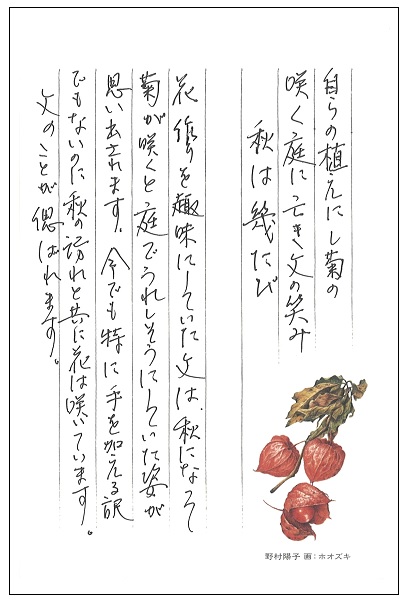 自らの植えにし菊の
咲く庭に亡き父の笑み
秋は幾たび
花作りを趣味にしていた父は、秋になって
菊が咲くと庭でうれしそうにしていた姿が
思い出されます。今でも特に手を加える訳
でもないのに秋の訪れと共に花は咲いています。
父のことが偲ばれます。
野村陽子 画:ホオズキ